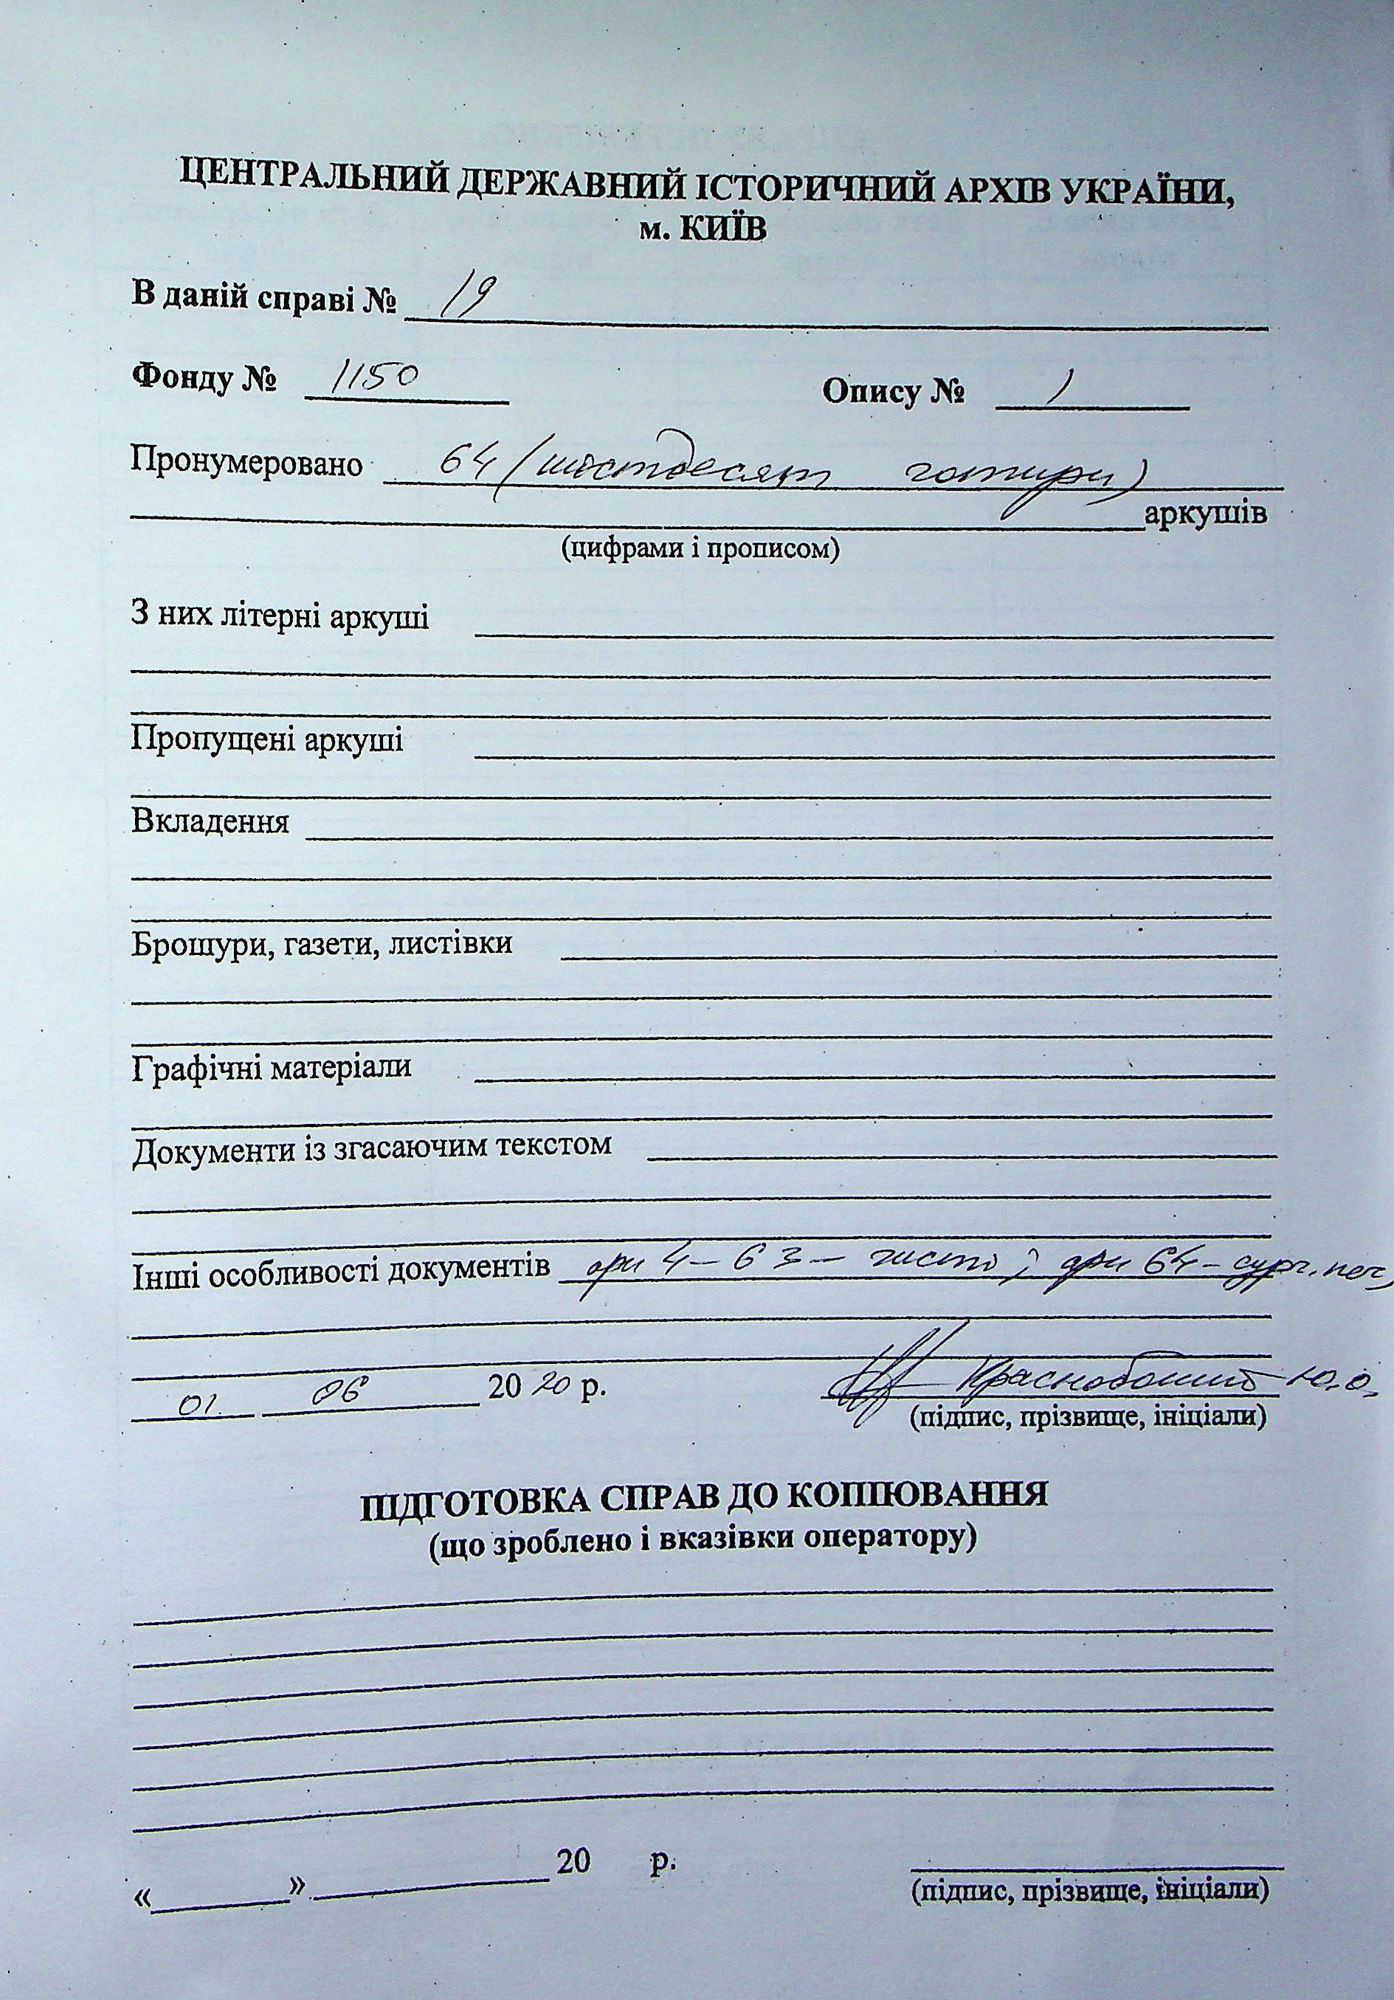 ЦЕНТРАЛЬНИЙ ДЕРЖАВНИЙ ІСТОРИЧНИЙ АРХІВ УКРАЇНИ,
м. КИЇВ
В даній справі № 19
Фонду № 1150 Опису № 1
Пронумеровано 64 (шістдесят чотири)
аркушів
(цифрами і прописом)
З них літерні аркуші
Пропущені аркуші
Вкладення
Брошури, газети, листівки
Графічні матеріали
Документи із згасаючим текстом
Інші особливості документів арк 4 – 63 – чисті; арк 64 – сург. печ,
01. 06 2020 р. Ю.О.
(підпис, прізвище, ініціали)
ПІДГОТОВКА СПРАВ ДО КОПІЮВАННЯ
(що зроблено і вказівки оператору)
«        »        20    р.
(підпис, прізвище, ініціали)